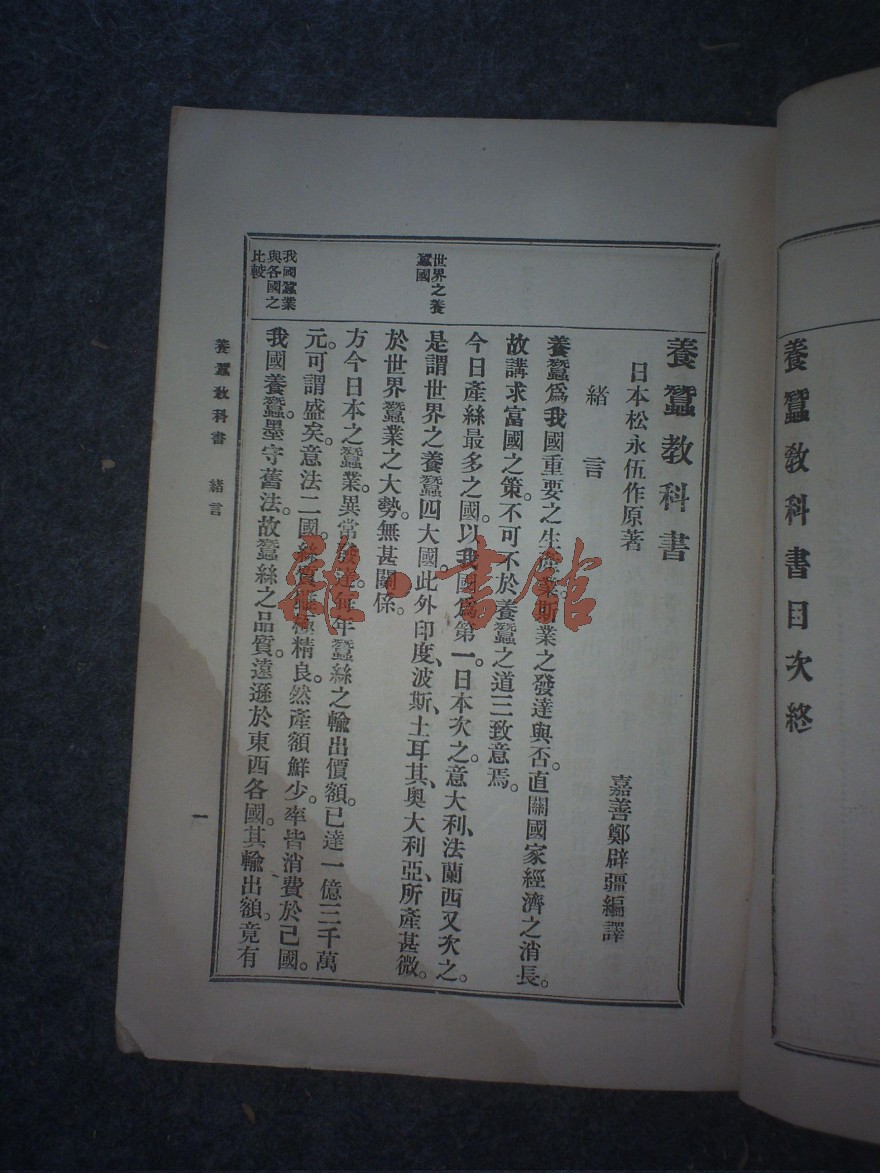 養蠶教科書目次終
養蠶教科書
日本松永伍作原著
嘉善鄭辟疆編譯
緒言
養蠶爲我國重要之生産業。斯業之發達與否。直關國家經濟之消長。
故講求富國之策。不可不於養蠶之道三致意焉。
世界之養
蠶國
今日產絲最多之國。以我國爲第一。日本次之。意大利、法蘭西又次之。
是謂世界之養蠶四大國。此外印度、波斯、土耳其、奧大利亞、所產甚微。
於世界蠶業之大勢。無甚關係。
我國蠶業
與各國之
比較
方今日本之蠶業。異常發達。每年蠶絲之輸出價額。已達一億三千萬
元。可謂盛矣。意法二國。絲質雖極精良。然產額鮮少。率皆消費於己國。
我國養蠶。墨守舊法。故蠶絲之品質。遠遜於東西各國。其輸出額。竟有
養蠶教科書 緒言
一
雜·書館